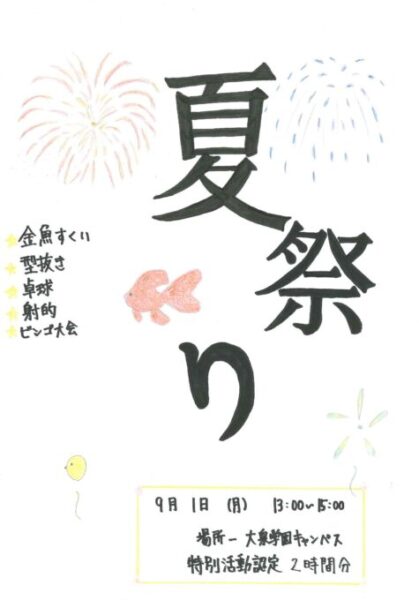 夏祭り
金魚すくい
型抜き
卓球
射的
ビンゴ大会
9月1日(月) 13:00~15:00
場所ー大泉学園キャンパス
特別活動認定 2時間分